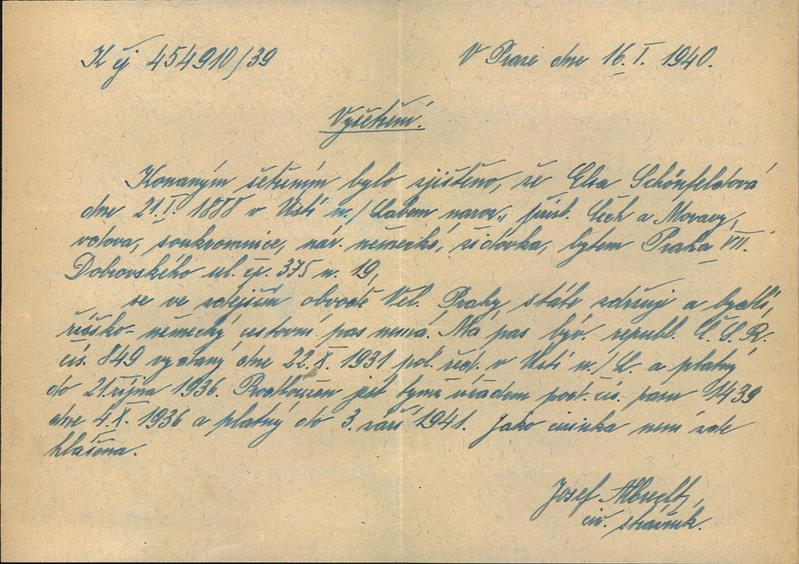 K čj 454910/39
V Praze dne 16.I. 1940.
Vyšetření.
Konaným šetřením bylo zjištěno, že Elsa Schönfeldová
dne 21.I. 1888 v Ústí n./Labem naroz., přísl. Čech a Moravy,
vdova, soukromnice, nár. německé, židovka, bytem Praha VII.
Dobrovského ul. čp. 375 n. 19,
se ve zdejším obvodě Vel. Prahy stále zdržuje a bydlí,
říšsko-německý cestovní pas nemá. Má pas býv. republ. Č.S.R.
čís. 849 vydaný dne 22.X. 1931 pol. řed. v Ústí n./L. a platný
do 21. října 1936. Prodloužen jest týmž úřadem pod čís. pasu 1439
dne 4.X. 1936 a platný do 3. září 1941. Jako cizinka není zde
hlášena.
Josef Albrecht,
civ. strážník.